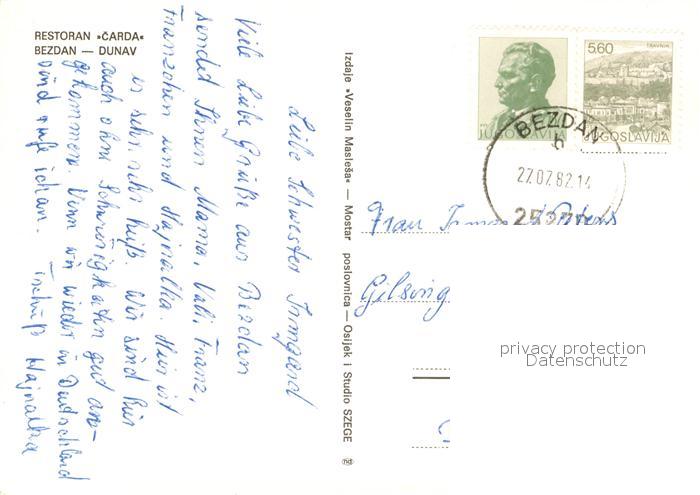 RESTORAN »ČARDA«
BEZDAN — DUNAV
Liebe Schwester Irmgard
Viele Liebe Grüße aus Bezdan
sendet Ihnen Mama, Vati, Franz,
Franzchen und Hajnalka. Hier ist
es sehr sehr heiß. Wir sind hier
auch ohne Schwirigkeiten gud an-
gekommen. Venn wir wieder in Deutschland
sind rufe ich an. Tschüß Hajnalka
Izdaje »Veselin Masleša« — Mostar poslovnica — Osijek i Studio SZEGE
JUGOSLAVIJA
5.60
TRAVNIK
JUGOSLAVIJA
BEZDAN
b
27.07.82.14
Frau Irmgard
Gilsing
privacy protection
Datenschutz